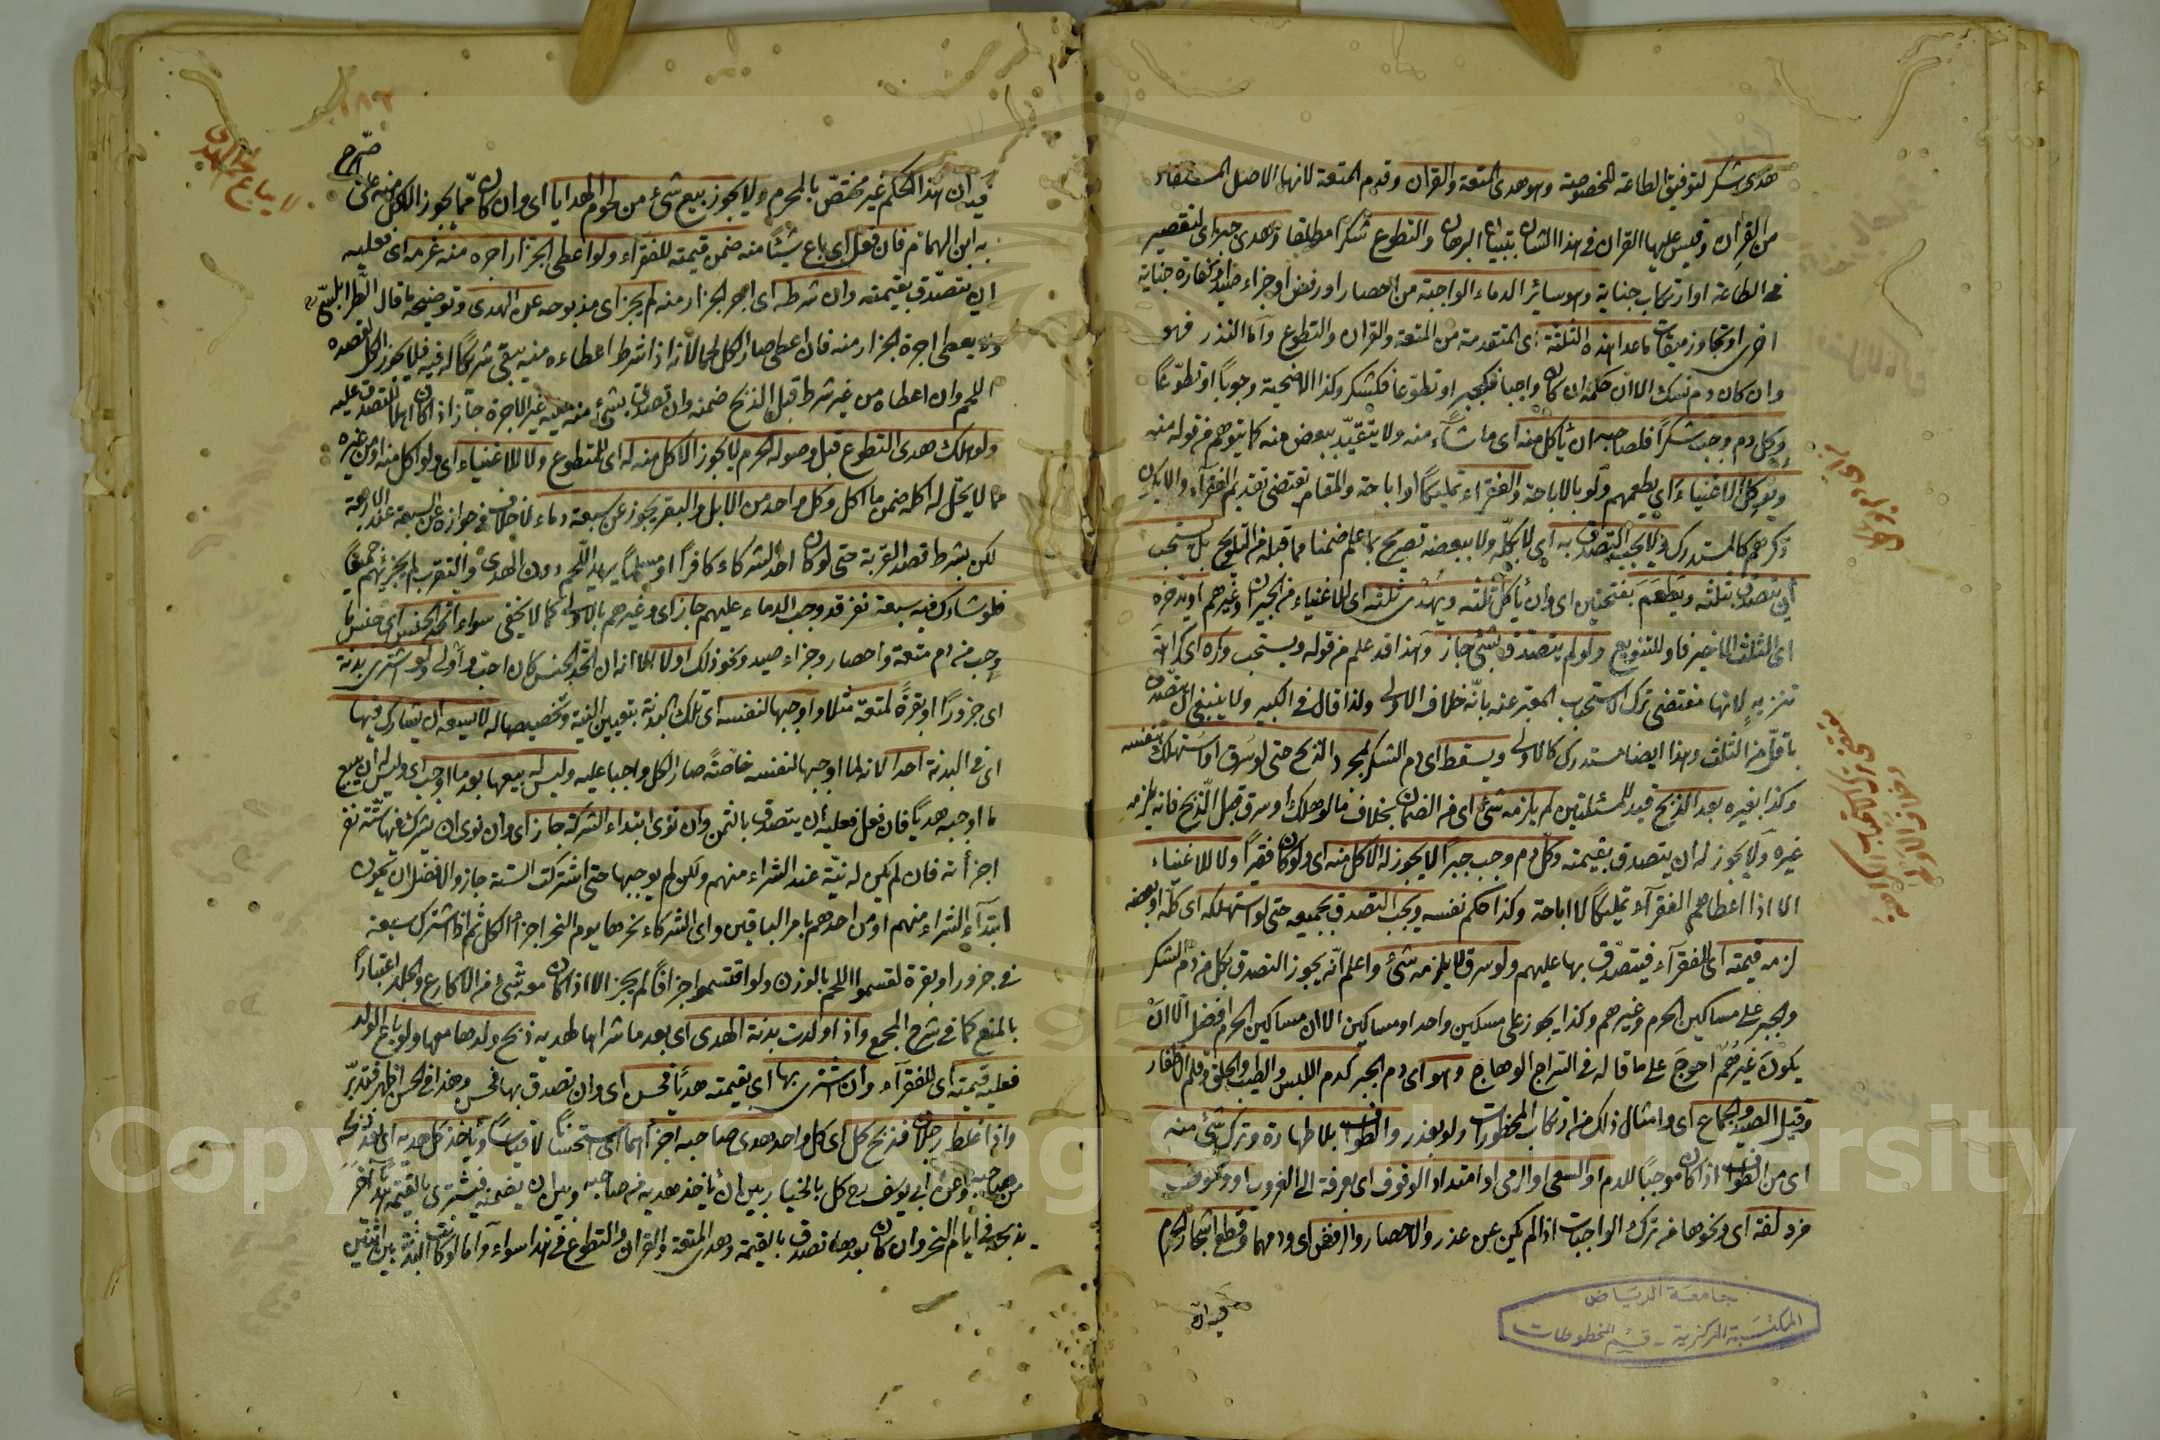 هدى شكر لتوفيق الطاعة المخصوصة وهو هدى المتعة والقران وقدم المتعة لانها الاصل المستفاد
من القرآن وقيس عليها القران في هذا الشان بتبيان البرهان والتطوع شكرا مطلقا وهدى جبر اى لتقصير
في الطاعة او ارتكاب جناية وهو سائر الدماء الواجبة من احصار او رفض او جزاء صيد وكفارة جناية
اخرى او تجاوز ميقات ما عدا هذه الثلثة اى المتقدمة من المتعة والقران والتطوع واما النذر فهو
وان كان دم نسك الا ان حكمه ان كان واجبا فكجبر او تطوعا فكشكر وكذا الاضحية وجوبا او تطوعا
وكل دم وجب شكرا فلصاحبه ان يأكل منه اى ما شاء منه ولا يتقيد ببعض منه كما يتوهم من قوله منه
ويوكل الاغنياء اى يطعمهم ولو بالاباحة والفقراء تمليكا او اباحة والمقام يقتضى تقديم الفقراء والا يكون
ذكرهم كالمستدرك ولا يجب التصدق به اى لا بكله ولا ببعضه تصريح بما علم ضمنا مما قبله من التلويح بل يستحب
ان يتصدق بثلثه ويطعم بفتحتين اى وان يأكل ثلثه ويهدى ثلثه اى للاغنياء من الجيران وغيرهم او يدخره
اى الثلث الاخير فاو للتنويع ولو لم يتصدق بشئ جاز وهذا قد علم من قوله ويستحب وكره اى كراهة
تنزيه لانها مقتضى ترك الاستحباب المعبر عنه بانه خلاف الاولى ولذا قال في الكبير ولا ينبغى ان يتصدق
باقل من الثلث وهذا ايضا مستدرك كالاولى ويسقط اى دم الشكر بمجرد الذبح حتى لو سرق او استهلك بنفسه
وكذا بغيره بعد الذبح قيد للمسئلتين لم يلزمه شئ اى من الضمان بخلاف ما لو هلك او سرق قبل الذبح فانه يلزمه
غيره ولا يجوز له ان يتصدق بقيمته وكل دم وجب جبرا لا يجوز له الاكل منه اى ولو كان فقيرا ولا للاغنياء
الا اذا اعطاهم الفقراء تمليكا لا اباحة وكذا حكم نفسه ويجب التصدق بجميعه حتى لو استهلكه اى كله او بعضه
لزمه قيمته اى للفقراء فيتصدق بها عليهم ولو سرق لا يلزمه شئ واعلم انه يجوز التصدق بكل من دم الشكر
والجبر على مساكين الحرم وغيرهم وكذا يجوز على مسكين واحد او مساكين الا ان مساكين الحرم افضل الا ان
يكون غيرهم احوج على ما قاله في السراج الوهاج وهو اى دم الجبر كدم اللبس والطيب والحلق وقلم الاظفار
وقتل الصيد والجماع اى وامثال ذلك من ارتكاب المحظورات ولو بعذر والطواف بلا طهارة وترك شئ منه
اى من الطواف اذا كان موجبا للدم او السعى او الرمى او امتداد الوقوف اى بعرفة الى الغروب او وقوف
مزدلفة اى ونحوها من ترك الواجبات اذا لم يكن عن عذر والاحصار والرفض اى ودمهما وقطع اشجار الحرم
قيد ان هذا الحكم غير مختص بالمحرم ولا يجوز بيع شئ من لحوم الهدايا اى وان كان مما يجوز الاكل منه على ما صرح
به ابن الهمام فان فعل اى باع شيئا منه ضمن قيمته للفقراء ولو اعطى الجزار اجره منه غرم اى فعليه
ان يتصدق بقيمته وان شرطه اى اجر الجزار منه لم يجز اى مذبوحه عن الهدى وتوضيحه ما قال الطرابلسى
ولا يعطى اجرة الجزار منه فان اعطى صار الكل لحما لانه اذا شرط اعطاءه منه يبقى شريكا له فيه فلا يجوز الكل لقصده
اللحم وان اعطاه من غير شرط قبل الذبح ضمنه وان تصدق بشئ منه عليه غير الاجرة جاز اذا كان اهلا للتصدق عليه
ولو هلك هدى التطوع قبل وصوله الحرم لا يجوز الاكل منه له اى للتطوع ولا للاغنياء اى ولو اكل منه او من غيره
مما لا يحل له اكله ضمن ما اكل وكل واحد من الابل والبقر يجوز عن سبعة دماء لا خلاف في جوازه عن السبعة عند الاربعة
لكن بشرط قصد القربة حتى لو كان احد الشركاء كافرا او مسلما يريد اللحم دون الهدى والتقرب لم يجزئهم جميعا
فلو شارك فيه سبعة نفر قد وجب الدماء عليهم جاز اى وغيرهم بالاولى كما لا يخفى سواء اتحد الجنس اى جنس ما
وجب من دم متعة واحصار وجزاء صيد ونحو ذلك او لا الا انه ان اتحد الجنس كان احب واولى ولو اشترى بدنة
اى جزورا او بقرة لمتعة مثلا واوجبها لنفسه اى تلك البدنة بتعيين النية وتخصيصها له لا يسعه ان يشارك فيها
اى في البدنة احدا لانه لما اوجبها لنفسه خاصة صار الكل واجبا عليه وليس له بيعها بعد ما اوجب اى وليس له ان يبيع
ما اوجبه هديا فان فعل فعليه ان يتصدق بالثمن وان نوى ابتداء الشركة جاز اى وان نوى ان يشرك فيها ستة نفر
اجزأته فان لم يكن له نية عند الشراء منهم ولكن لم يوجبها حتى اشتركت الستة جاز والافضل ان يكون
ابتداء الشراء منهم او من احدهم بامر الباقين واى الشركاء نحرها يوم النحر اجزأ الكل ثم اذا اشترك سبعة
في جزور او بقرة لقسموا اللحم بالوزن ولو اقتسموا جزافا لم يجز الا اذا كان معه شئ من الاكارع والجلد اعتبارا
بالمنع كما في شرح المجمع واذا ولدت بدنة الهدى اى بعد ما شراها لهديه ذبح ولدها معها ولو باع الولد
فعليه قيمته اى للفقراء وان اشترى بها اى بقيمته هديا فحسن اى وان تصدق بها فحسن وهذا في الحسن اظهر فتدبر
واذا غلط رجلان فذبح كل اى كل واحد هدى صاحبه اجزأهما اى استحسانا لا قياسا ويأخذ كل هديه اى بعد ذبحه
من صاحبه وعن ابى يوسف رح كل بالخيار بين ان يأخذ هديه من صاحبه وبين ان يضمنه فيشترى بالقيمة هديا آخر
يذبحه في ايام النحر وان كان بعدها تصدق بالقيمة وهدى المتعة والقران والتطوع في هذا سواء واما لو كانت البدنة بين اثنين
قيد ان
جامعة الرياض
المكتبة المركزية - قسم المخطوطات
Copyright © King Saud University